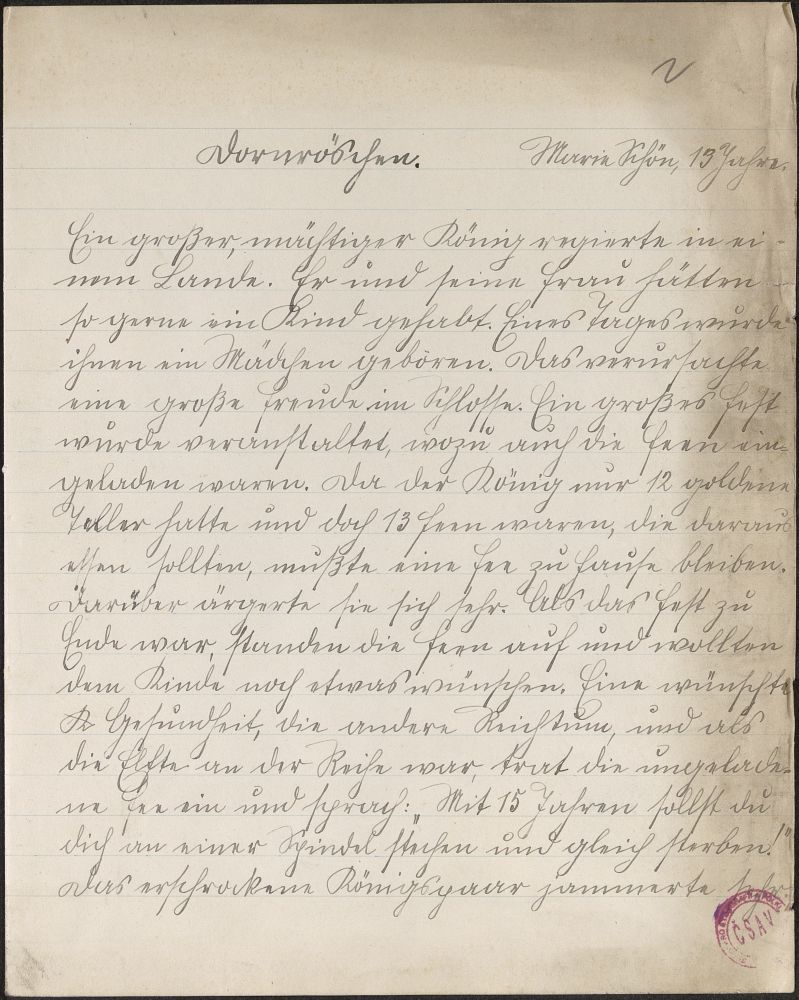 2
Dornröschen. Marie Schön, 13 Jahre.
Ein großer, mächtiger König regierte in ei-
nem Lande. Er und seine Frau hätten
so gerne ein Kind gehabt. Eines Tages wurde
ihnen ein Mädchen geboren. Das verursachte
eine große Freude im Schlosse. Ein großes Fest
wurde veranstaltet, wozu auch die Feen ein-
geladen waren. Da der König nur 12 goldene
Teller hatte und doch 13 Feen waren, die daraus
essen sollten, mußte eine Fee zu Hause bleiben.
Darüber ärgerte sie sich sehr. Als das Fest zu
Ende war, standen die Feen auf und wollten
dem Kinde noch etwas wünschen. Eine wünschte
Gesundheit, die andere Reichtum, und als
die Elfte an der Reihe war, trat die ungelade-
ne Fee ein und sprach: „Mit 15 Jahren sollst du
dich an einer Spindel stechen und gleich sterben!"
Das erschrockene Königspaar jammerte sehr,
ČSAV